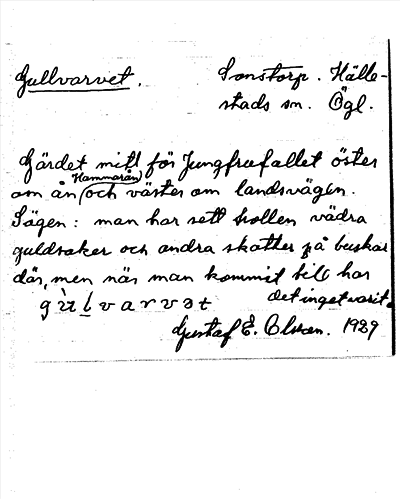 Gullvarvet. Sonstorp. Hälle-
stads sn. Ögl.
Gärdet mitt för Jungfrufallet öster
om ån (Hammarån) och väster om landsvägen.
Sägen: man har sett trollen vädra
guldsaker och andra skatter på buskar
där, men när man kommit till har
det inget varit.
gù̀lvarvət
Gustaf E. Olsson. 1929